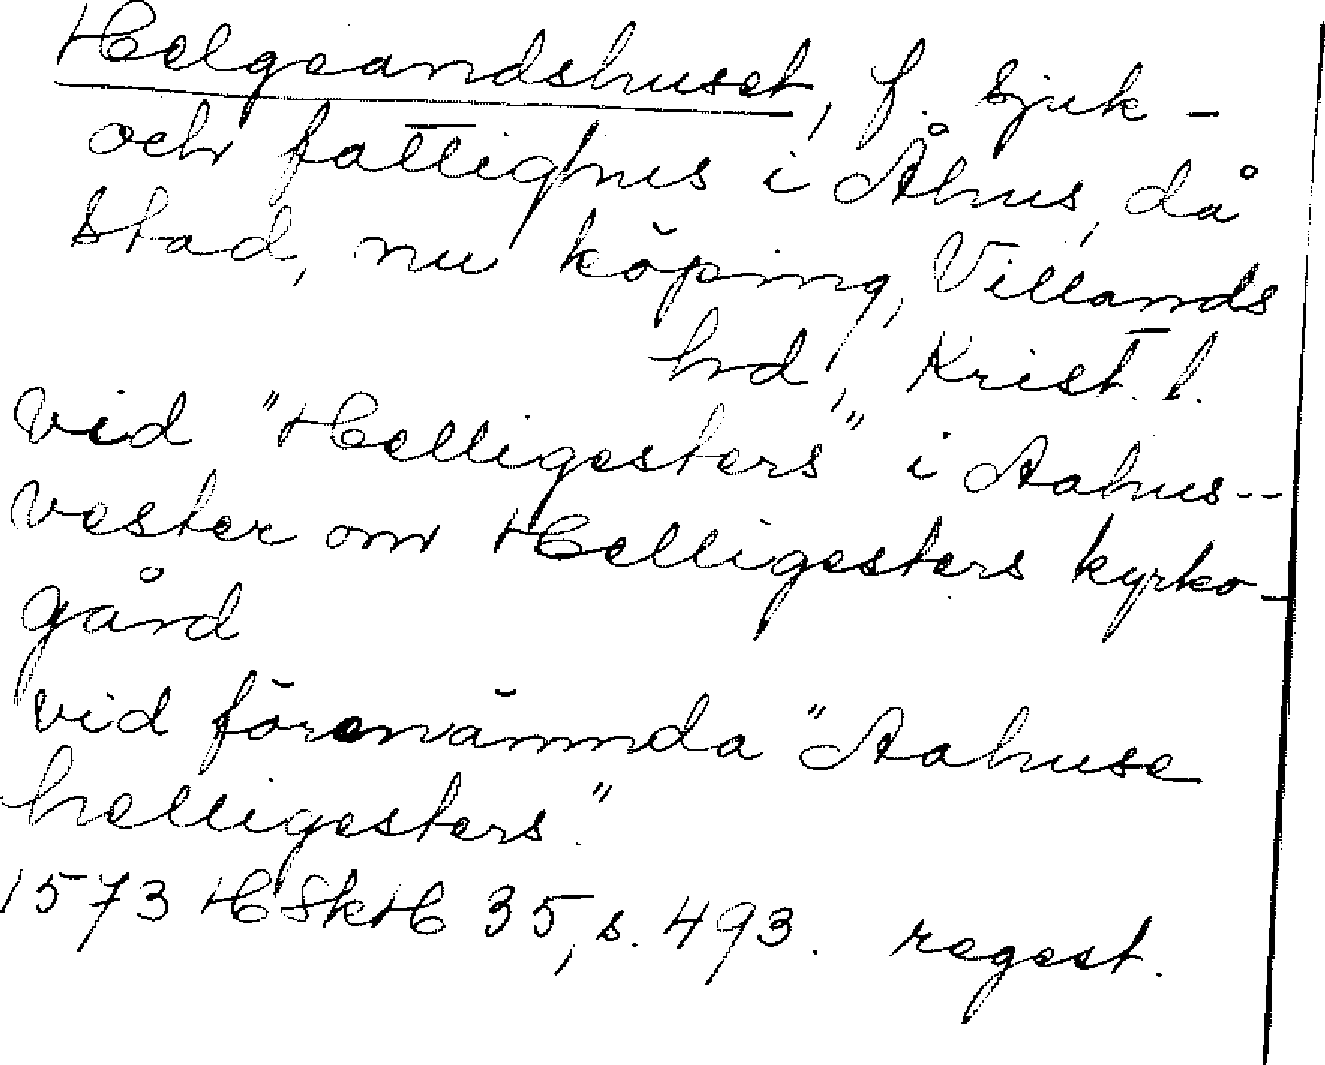 Helgeandshuset, f. sjuk-
och fattighus i Åhus, då
stad, nu köping, Villands
hd, Krist. l.
vid "Helligesters" i Aahus--
vester om Helligesters kyrko-
gård
vid förenämnda "Aahuse
helligesters".
1573 HSkH 35, s. 493. regest.